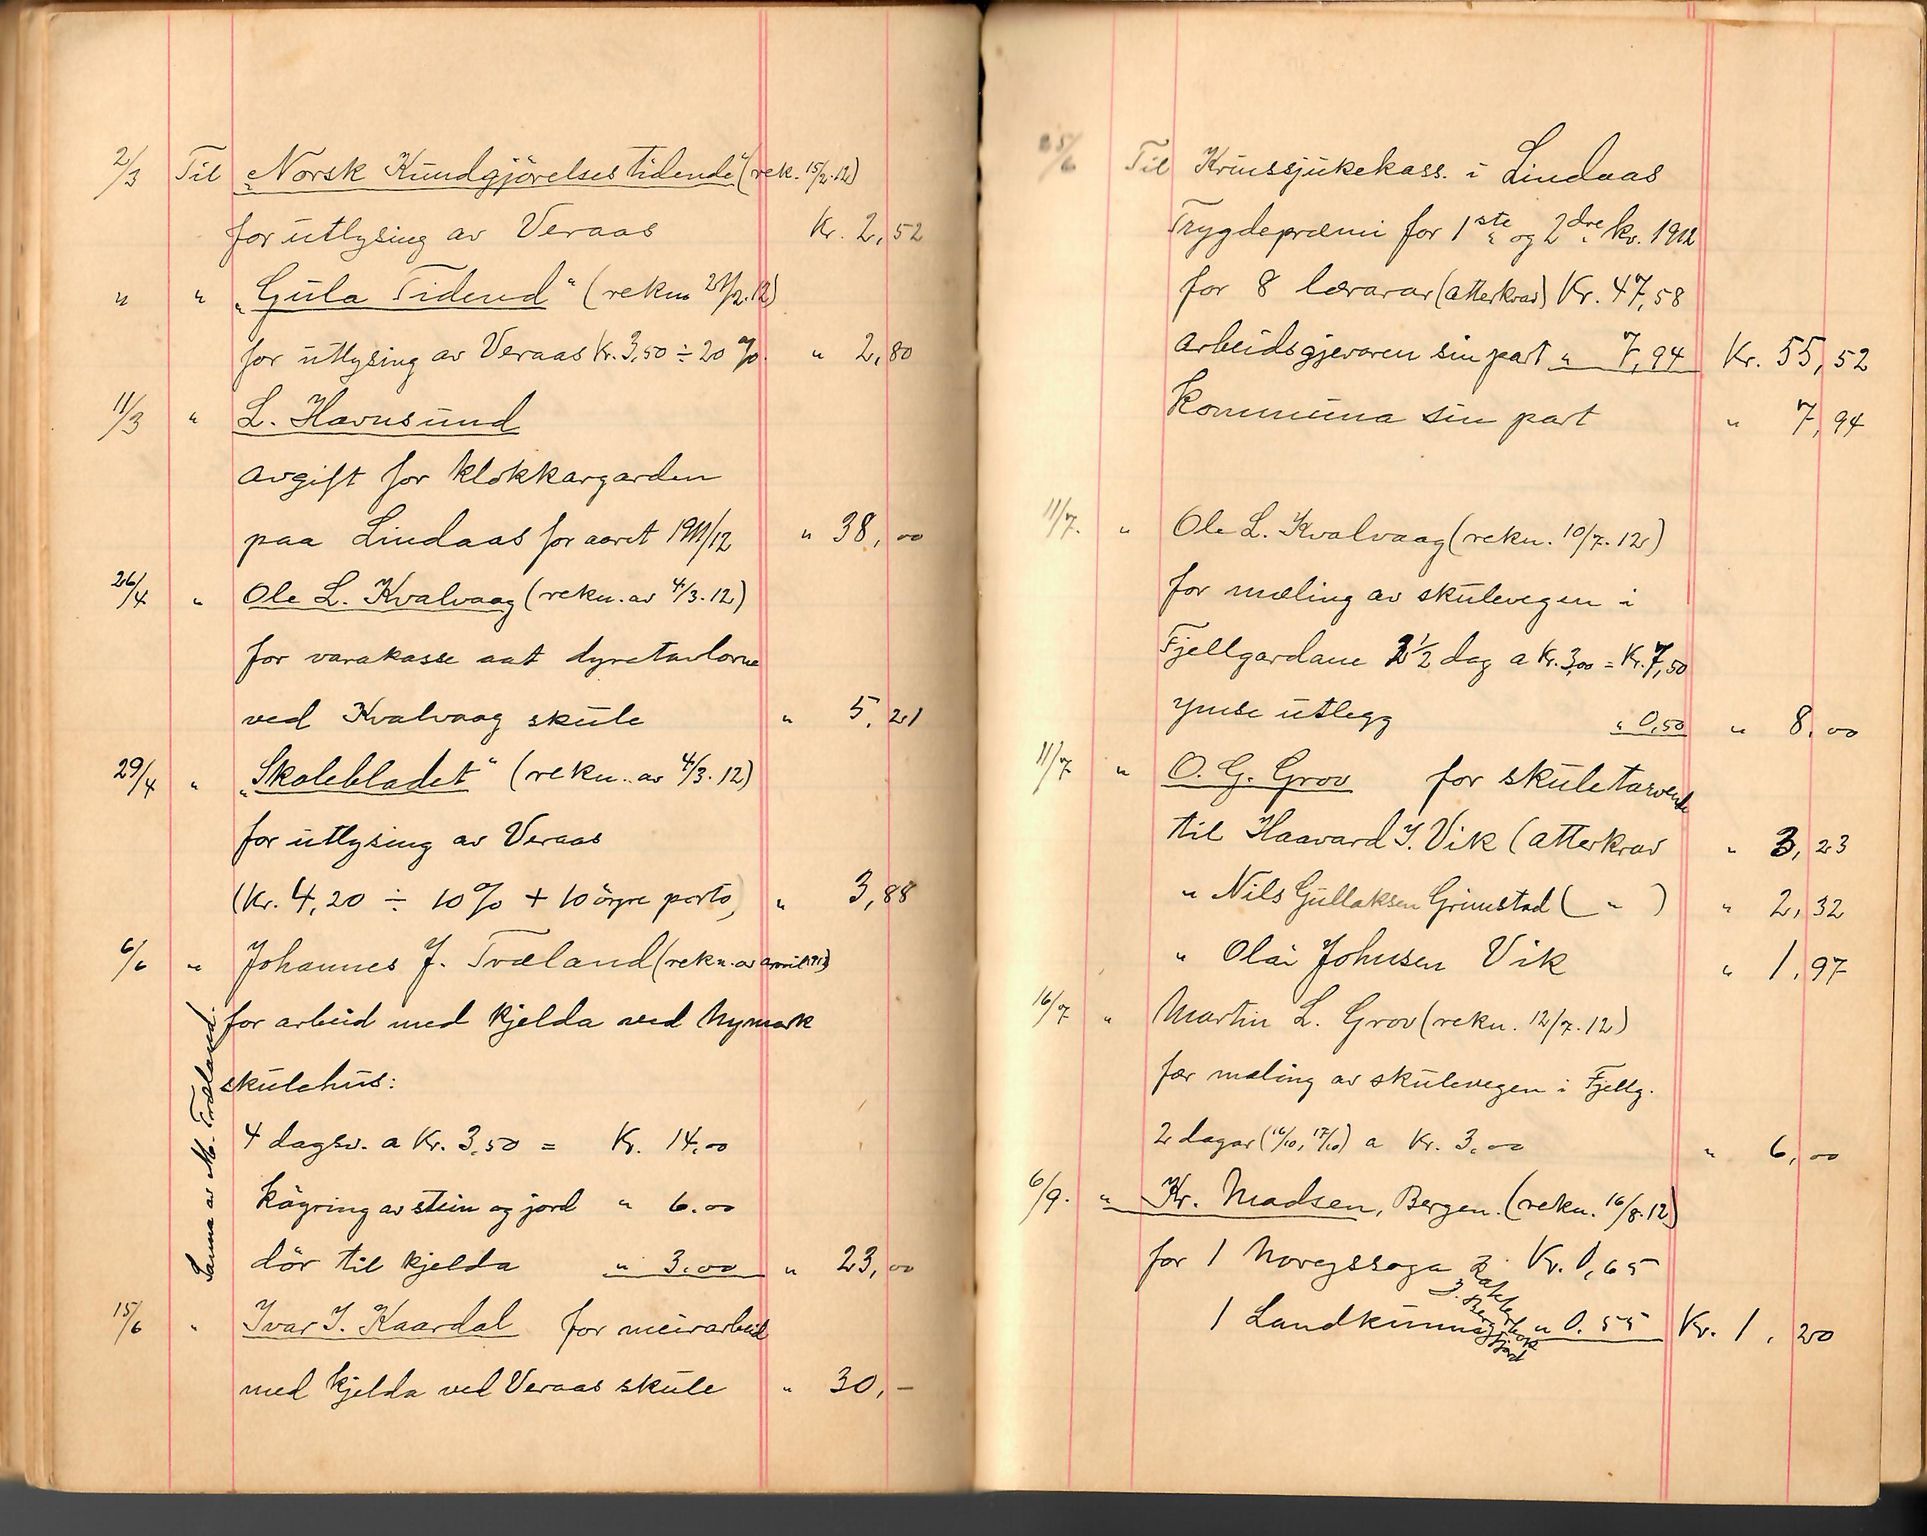 2/3 Til „Norsk Kundgjörelses tidende" (rek. 15/2.12)
for utlysing av Veraas Kr. 2,52
" " „Gula Tidend" (rekn. 27/2.12)
for utlysing av Veraas Kr. 3,50 ÷ 20 % " 2,80
11/3 " L. Havnsund
avgift for klokkargarden
paa Lindaas for aaret 1911/12 " 38,00
26/4 " Ole L. Kvalvaag (rekn. av 4/3.12)
for varakasse aat dyretavlorne
ved Kvalvaag skule " 5,21
29/4 " „Skolebladet" (rekn. av 4/3.12)
for utlysing av Veraas
(Kr. 4,20 ÷ 10 % + 10 öyre porto) " 3,88
6/6 " Johannes J. Træland (rekn. av april 1912)
for arbeid med kjelda ved Nymark
skulehus:
4 dagsv. a Kr. 3,50 = Kr. 14,00
köyring av stein og jord " 6.00
dör til kjelda " 3.00 " 23,00
Sama av M. Træland.
15/6 " Ivar I. Kaardal for meirarbeid
med kjelda ved Veraas skule " 30,–
25/6 Til Krinssjukekass. i Lindaas
Trygdepræmi for 1ste og 2dre kv. 1912
for 8 lærarar (atterkrav) Kr. 47,58
arbeidsgjevaren sin part " 7,94 Kr. 55,52
Kommuna sin part " 7,94
11/7. " Ole L. Kvalvaag (rekn. 10/7.12)
for mæling av skulevegen i
Fjellgardane 2 1/2 dag a Kr. 3,00 = Kr. 7,50
ymse utlegg " 0,50 " 8,00
11/7 " O. G. Grov for skuletarvende
til Haavard I. Vik (atterkrav " 3,23
" Nils Gullaksen Grimstad ( " ) " 2,32
" Olai Johnsen Vik " 1,97
16/7 " Martin L. Grov (rekn. 12/7.12)
for mæling av skulevegen i Fjellg.
2 dagar (16/10, 17/10) a Kr. 3,00 " 6,00
6/9. " Kr. Madsen, Bergen. (rekn. 16/8.12)
for 1 Noregssoga Kr. 0,65
1 Landkunne " 0.55 Kr. 1,20